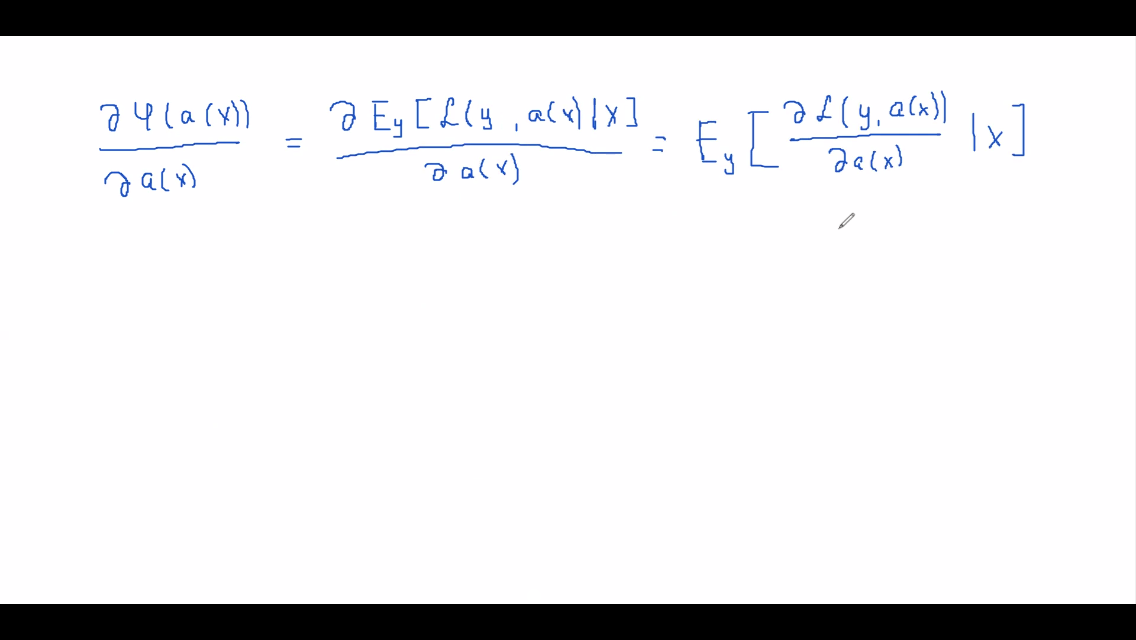 ∂Ψ(a(x))/∂a(x) = ∂E_y[ℒ(y, a(x)|x]/∂a(x) = E_y[∂ℒ(y, a(x))/∂a(x) |x]